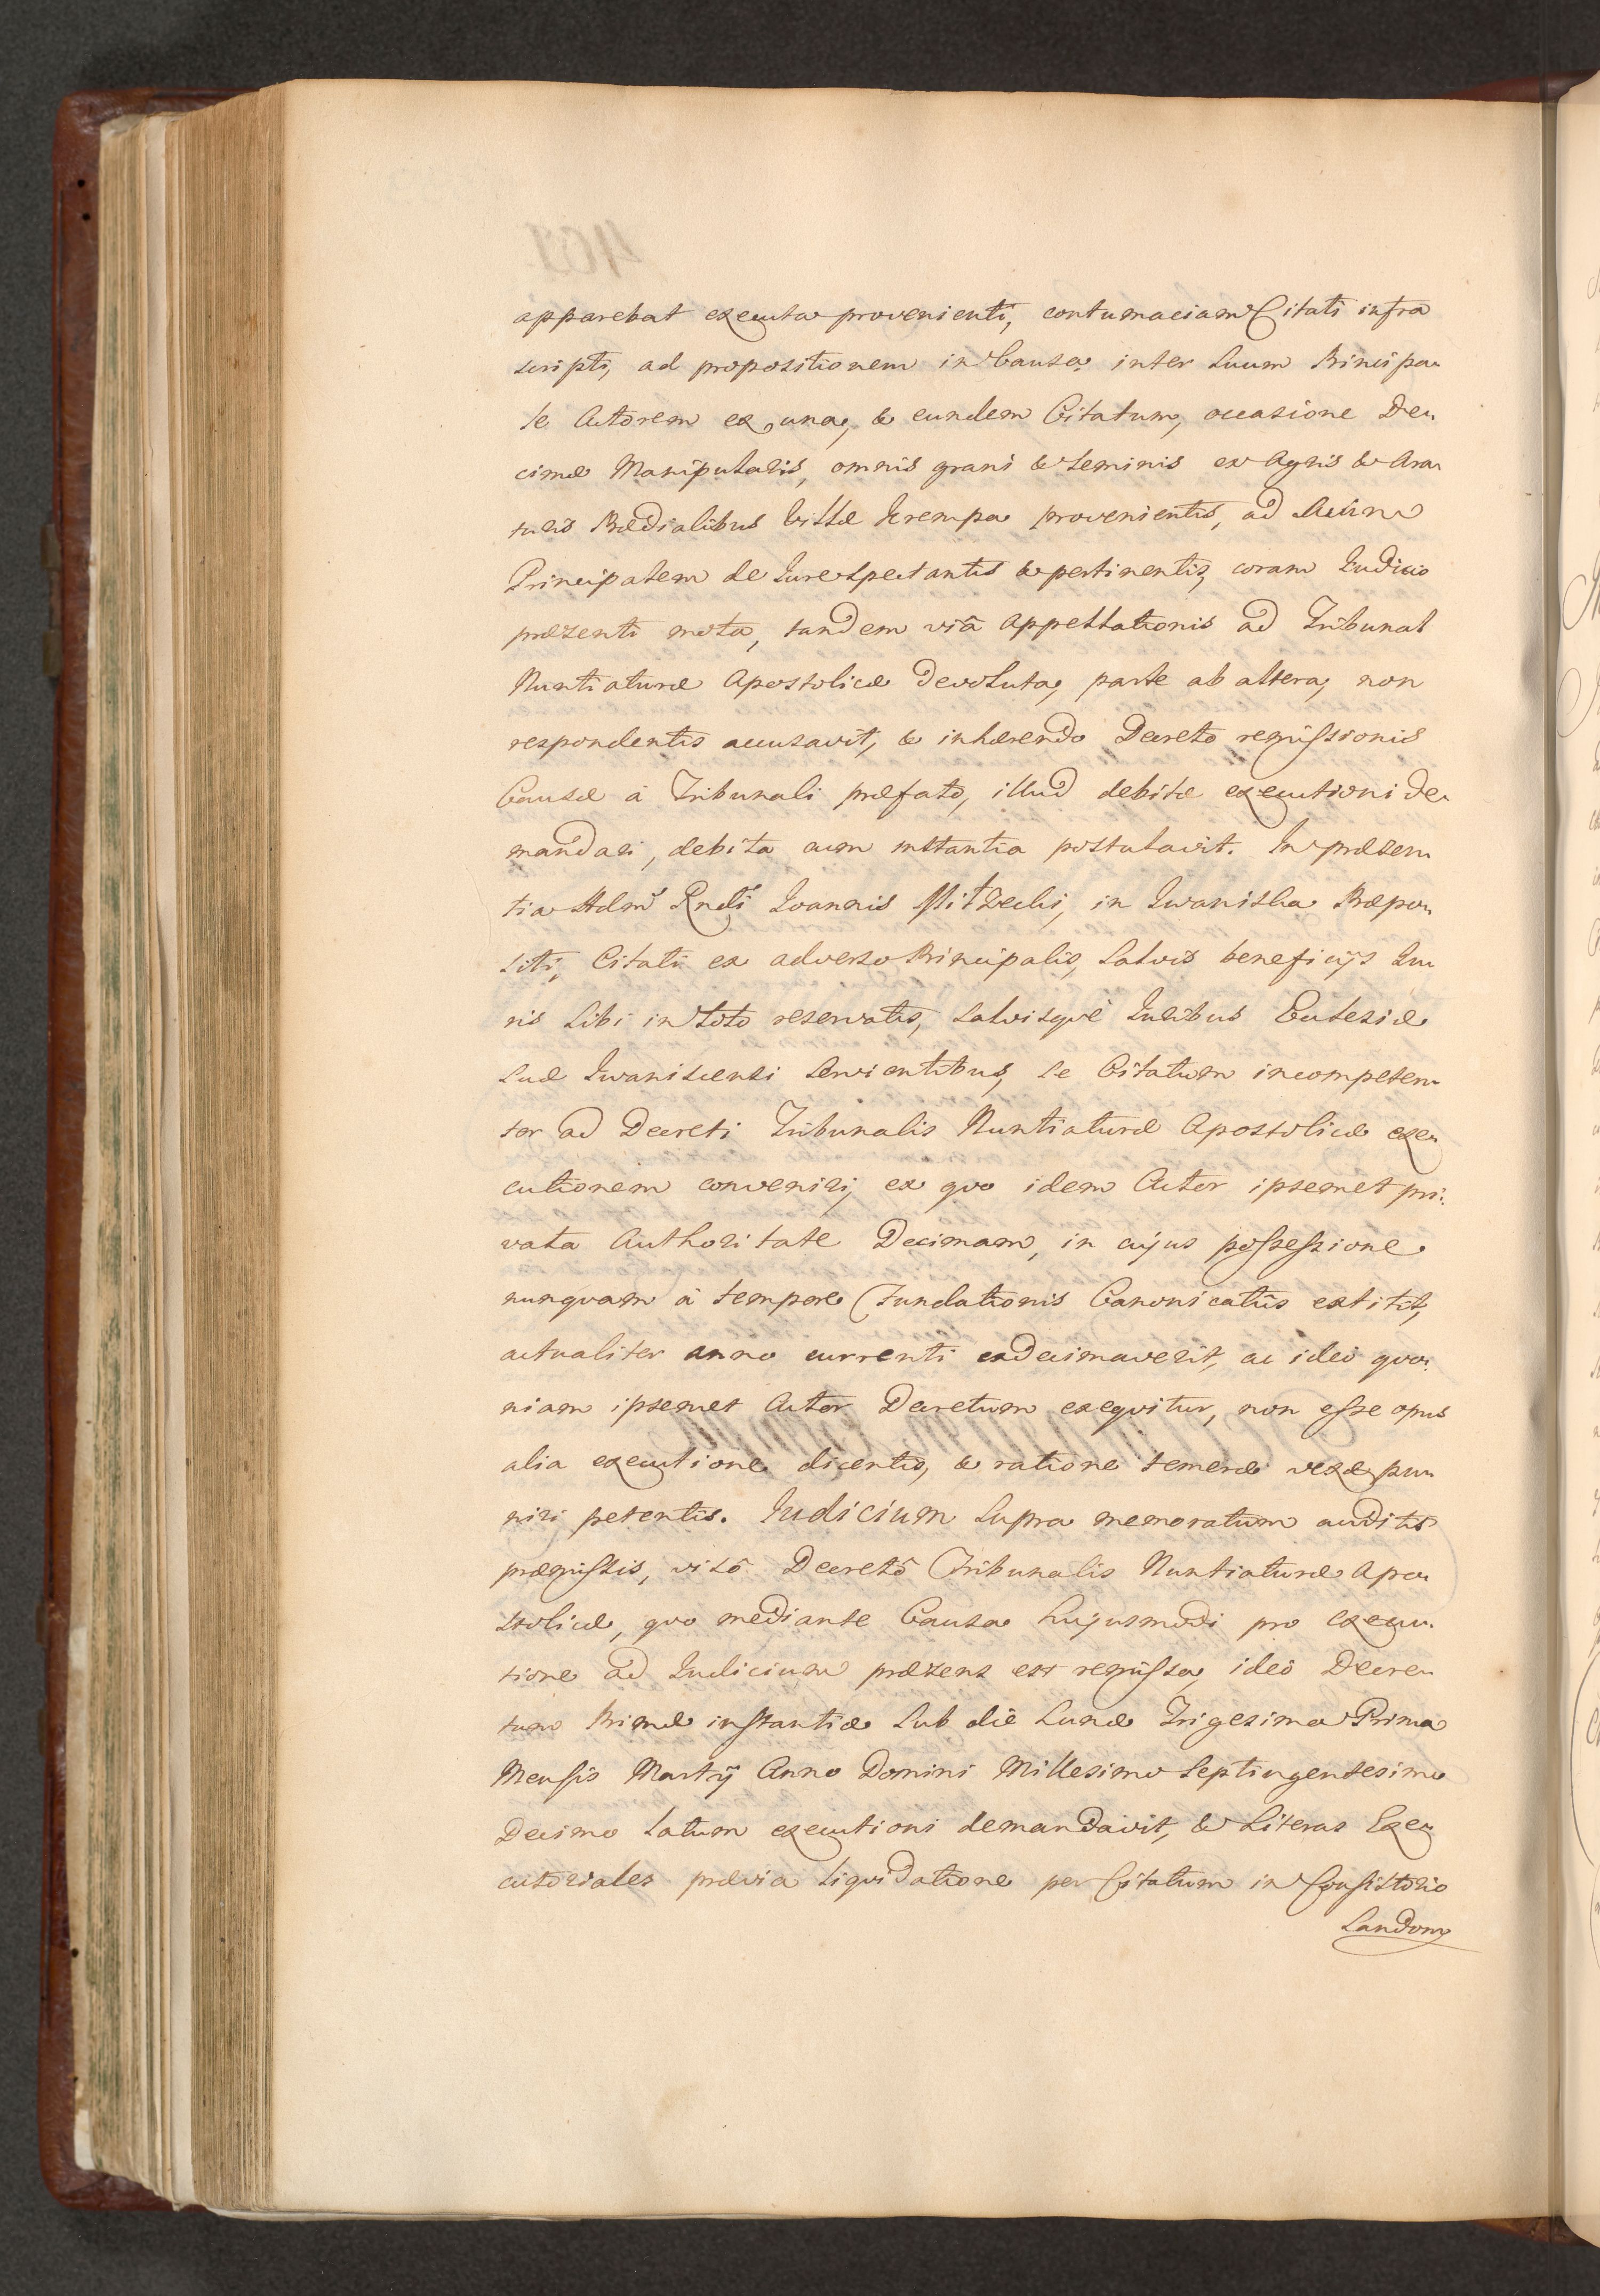 apparebat executa provenienti, contumaciam Citati infra
scripti, ad propositionem in Causa inter Suum Principa-
le Actorem ex una, & eundem Citatum, occasione De-
cimæ Manipularis, omnis grani & seminis ex Agris & Ara-
turis Prædialibus Villæ Krempa provenientis, ad Suum
Principalem de Jure spectantis & pertinentis, coram Judicio
præsenti mota, tandem viâ appellationis ad Tribunal
Nuntiaturæ Apostolicæ devoluta, parte ab altera, non
respondentis accusavit, & inhærendo Decreto remissionis
Causæ à Tribunali præfato, illud debitæ executioni de-
mandari, debita cum instantia postulavit. In præsen-
tia Adm Rndi Joannis in Iwaniska Præpo-
siti, Citati ex adverso Principalis, salvis beneficijs Ju-
ris sibi in toto reservatis, salvisque Juribus Ecclesiæ
suæ Iwaniscensi servientibus, se Citatum incompeten-
ter ad Decreti Tribunalis Nuntiaturæ Apostolicæ exe-
cutionem conveniri, ex quo idem Actor ipsemet pri-
vata Authoritate Decimam, in cujus possessione
nunquam à tempore Fundationis Canonicatûs extitit,
actualiter anno currenti exdecimaverit, ac ideò quo-
niam ipsemet Actor Decretum exequitur, non esse opus
alia executione dicentis, & ratione temeræ vexæ pu-
niri petentis. Judicium supra memoratum auditis
præmissis, visô Decretô Tribunalis Nuntiaturæ Apo-
stolicæ, quo mediante Causa hujusmodi pro execu-
tione ad Judicium præsens est remissa, ideò Decre-
tum Primæ instantiæ sub die Lunæ Trigesima Prima
Mensis Martij Anno Domini Millesimo Septingentesimo
Decimo latum executioni demandavit, & Literas Exe-
cutoriales prævia liquidatione per Citatum in Consistorio
Sandom